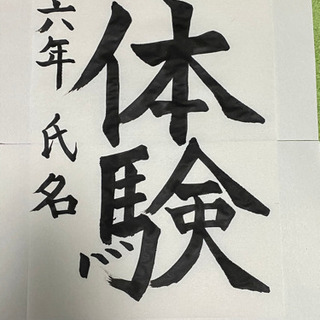 体験
六年 氏名